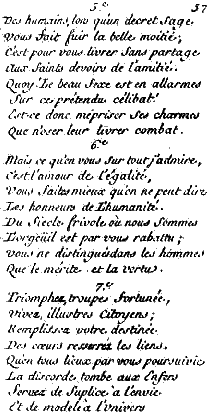 5.e 57
Des humains, lors qu'un decret Sage
Vous fait fuir la belle moitié;
C'est pour vous livrer Sans partage
Aux Saints devoirs de l'amitié.
Quoy! Le beau Sexe est en allarmes
Sur ce prétendu célibat!
Est-ce donc mépriser Ses charmes
Que n'oser leur livrer combat.
6.e
Mais ce qu'en vous Sur tout j'admire,
C'est l'amour de l'égalité,
Vous faites mieux qu'on ne peut dire
Les honneurs de L'humanité.
Du Siecle frivole où nous Sommes
L'orgueüil est par vous rabattu;
Vous ne distingués dans les hommes
Que le mérite et la vertus.
7.e
Triomphez, troupes fortunée,
Vivez, illustres Citoyens;
Remplissez votre destinée
Des cœurs resserréz les liens.
Qu'en tous lieux par vous poursuivie
La discorde tombe aux Enfers
Servez de Suplice à l'envie
Et de modele à l'univers